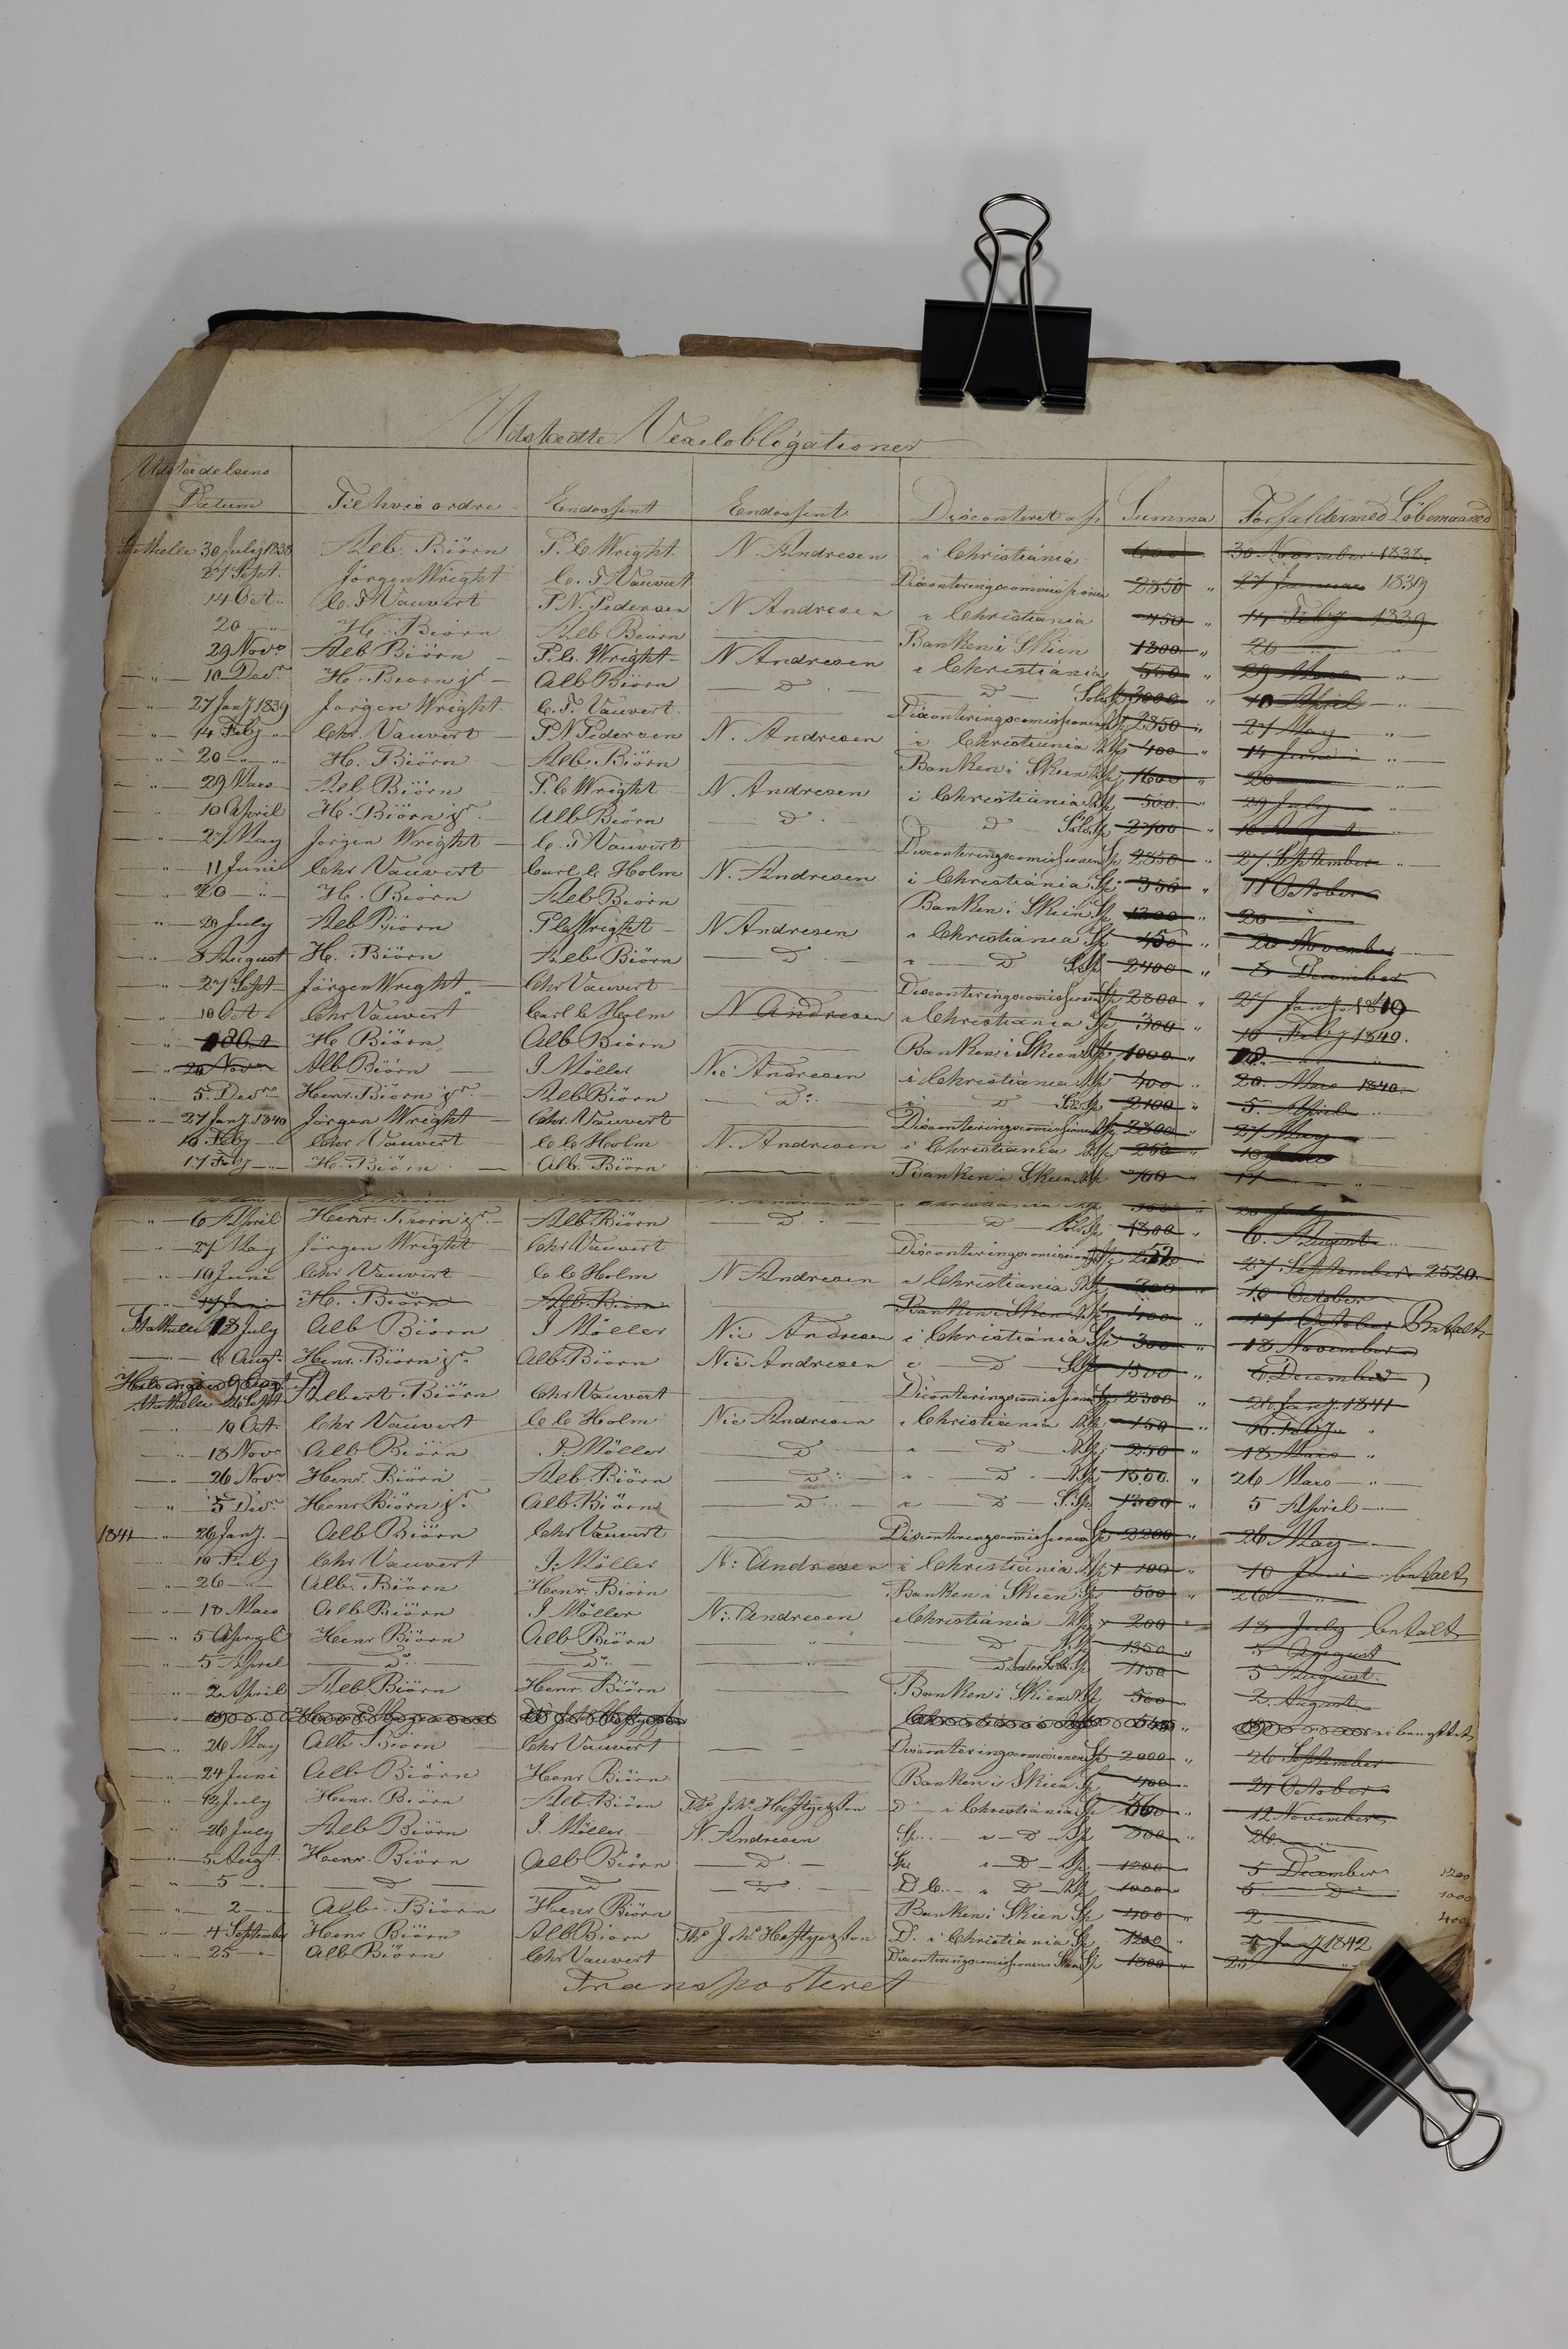 Udstædte Vexelobligationer
Udstædelsens Datum Til hvis ordre Endossent Endossent Disconteret af Summa Forfaldermed Löbemaaned
Stathelle 30 July 1838 Alb. Biörn P. C. Wright. N. Andresen i Christiania 400 " 30 November 1838.
27 Sept. Jörgen Wright C. F. Vauvert Disconteringscommissionen 2850 " 27 Januar 1839
14 Oct. C. F. Vauvert P. N. Pedersen N Andresen i Christiania 450 " 14 Feby 1839
20 " H. Biörn Alb Biörn Banken i Skien 1800 " 20 "
29 Novr Alb Biörn P. C. Wright N Andresen i Christiania 550 " 29 Mars "
" 10 Decr H. Biörn jr. Alb Biörn D D Sølv Sp 3000 10 April "
" 27 Jany 1839 Jörgen Wright C. F. Vauvert. Disconteringscomissionen 2850 " 27 May "
" 14 Feby " Chr. Vauvert P N Pedersen N. Andresen i Christiania 400 " 14 Juni "
" 20 " H. Biörn Alb. Biörn Banken i Skien 1600 " 20 "
" 29 Mars Alb Biörn P. C Wright N. Andresen i Christiania 500 " 29 July "
" 10 April H. Biörn jr. Alb Biörn D D Sølv Sp 2700 " 10 August "
" 27 May Jörgen Wright C. F Vauvert Disconteringscomissionen Sp 2850 " 27 September "
" 11 Juni Chr Vauvert Carl C Holm N. Andresen i Christiania Sp 350 " 11 October
" 20 " H. Biörn Alb Biörn Banken i Skien Sp 1200 " 20
" 20 July Alb Biörn P C Wright N Andresen i Christiania Sp 450 " 20 November
" 8 August H. Biörn Alb Biörn D i D S Sp 2400 " 8 December
" 27 Sept Jörgen Wright Chr Vauvert Disconteringscomissionen Sp 2800 " 27 Jany 1840
" 10 Oct Chr Vauvert Carl C Holm N Andresen i Christiania Sp 300 " 10 Feby 1840.
" 18 Oct H Biörn Alb Biörn Banken i Skien 1000 " 18
" 20 Novr Alb Biörn J Möller Nic Andresen i Christiania 400 " 20. Mars 1840.
" 5. Decr Henr. Biörn jr. Alb Biörn D i D Sølv Sp 2100 " 5. April "
" 27 Jany. 1840 Jörgen Wright Chr. Vauvert Disconteringscomissionen 2800 " 27 May
" 10 Feby Chr Vauvert C C Holm N. Andresen i Christiania 250 " 10 Juni
" 17 Feby H. Biörn Alb. Biörn Banken i Skien 700 " 17 "
" 6 April Henr. Biörn jr. Alb. Biörn D D Sølv Sp 1800 " 6. August
" 27 May Jörgen Wright Chr Vauvert Disconteringscomissionen 27 September 2520
" 10 Juni Chr. Vauvert C C Holm N Andresen i Christiania 200 " 10 October
17 Juni H. Biörn Alb. Biörn Banken i Skien 400 " 17 October Betalt
Stathelle 18 July Alb Biörn J Möller Nic Andresen i Christiania Sp 300 " 18 November
" 6 Augt. Henr. Biörn jr. Alb. Biörn Nic Andresen i D S Sp 1500 " 6 December
Stathelle 26 Sept Albert Biörn Chr Vauvert Disconteringscomissionen Sp 2300 " 26 Jany. 1841
" 10 Oct. Chr Vauvert C C Holm Nic Andresen i Christiania 150 " 10. Feby. "
" 18 Novr Alb Biörn J. Möller D " D 250 " 18 Mars "
" 26 Novr Henr. Biörn Alb. Biörn D " D 1500. " 26 Mars "
" 5 Decr Henr Biörn jr. Alb. Biörn D " D S. Sp 1300 " 5 April
1841 " 26 Jany. Alb Biörn Chr Vauvert Disconteringscomissionen Sp 2200 " 26 May
" 10 Feby Chr Vauvert J. Möller N: Andresen i Christiania 100 " 10 Juni betalt
" 26 " Alb. Biörn Henr. Biörn Banken i Skien Sp 500 " 26 "
" 18 Mars Alb Biörn J Möller N: Andresen i Christiania 200 " 18 July betalt
" 5 April Henr Biörn Alb Biörn " D 1350 " 5 August
" 5 April D D " D 1150 5 August
" 2 April Alb Biörn Henr. Biörn Banken i Skien 500 2. August
" 26 May Alb Biörn Chr Vauvert Disconteringscomissionen Sp 2000 " 26 September
" 24 Juni Alb Biörn Henr Biörn Banken i Skien Sp 400 " 24 October
" 12 July Henr. Biörn Alb Biörn Ths Johs Heftye & Søn D i Christiania Sp 12 November
" 26 July Alb Biörn J. Möller N. Andresen D 300 " 26
" 5 Augt. Henr. Biörn Alb Biörn D D 1200 5 December 1200
" 5 " D D D D 1000 " 5 D 1000
" 2 Alb. Biörn Henr Biörn Banken i Skien Sp 400 " 2 400
" 4 September Henr Biörn Alb Biörn Ths Johs Heftye & Søn D. i Christiania Sp 1200 " 4 Jany 1842
" 25 " Alb Biörn Chr Vauvert Disconteringscomissionen Skien Sp 1800 " 25 "
Transporteret